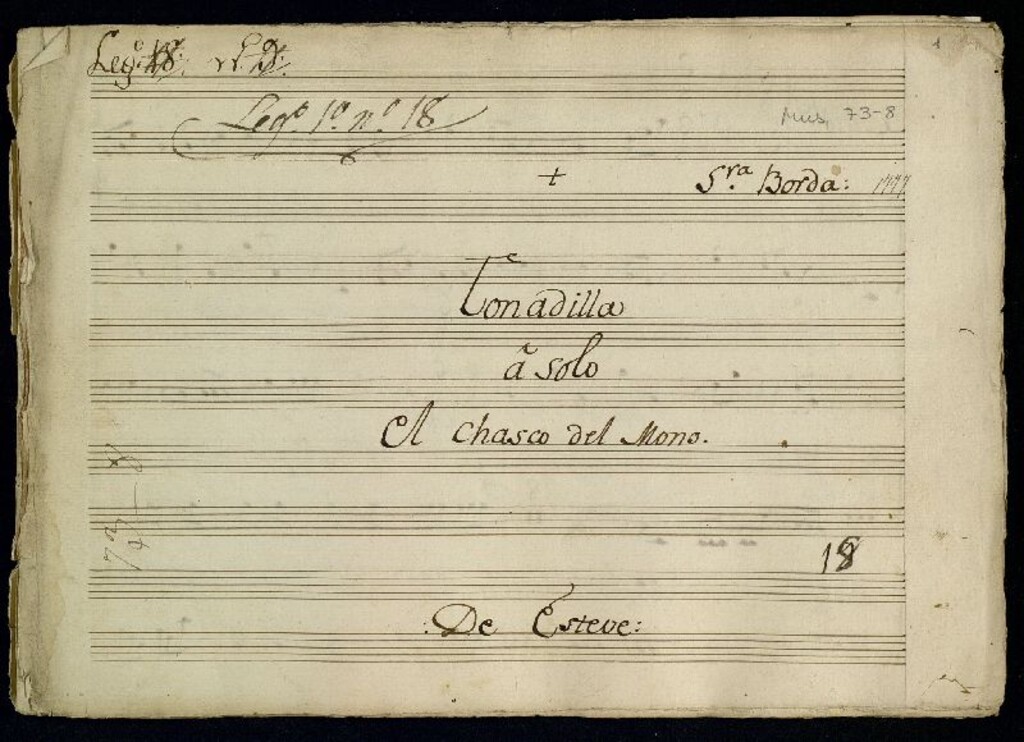 Leg.º
Leg.º 1.º n.º 18
Mus. 73-8
+
S.ra Borda:
Tonadilla
â solo
el chasco del Mono.
18
:De Esteve: